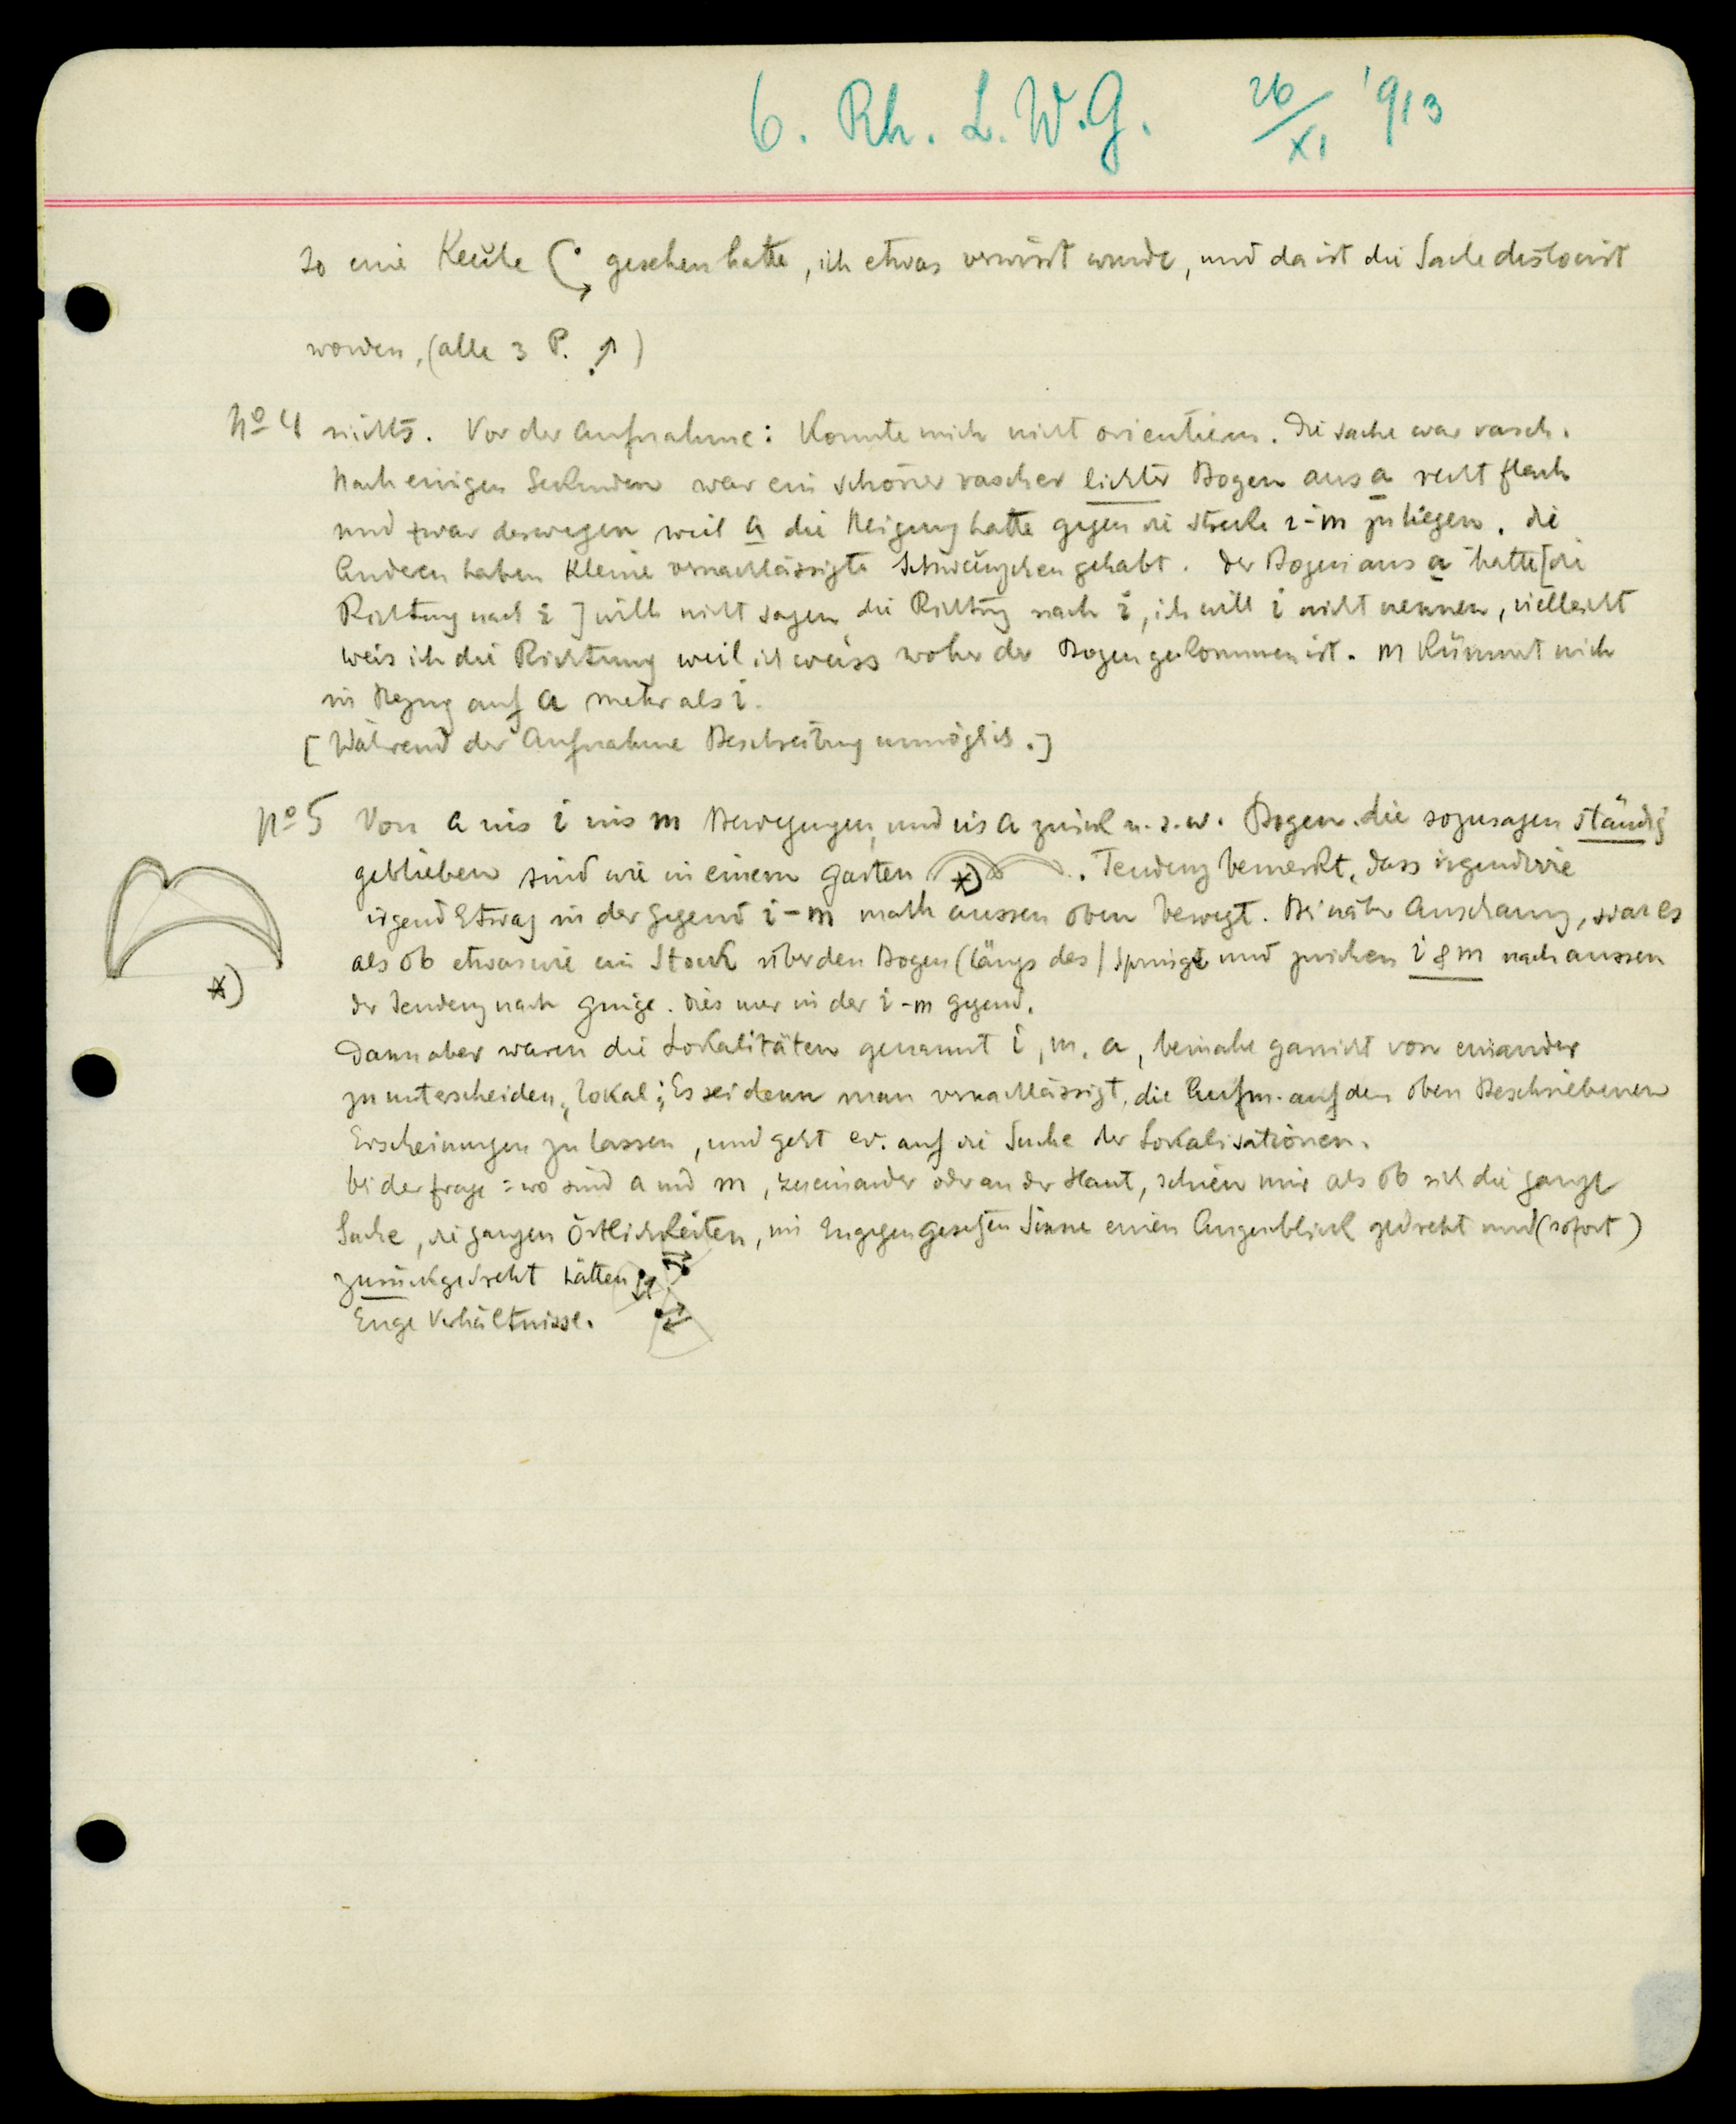 6. Rh. L. W. G. 26/XI '913
so eine Keule gesehen hatte, ich etwas verwirrt wurde, und da ist die Sache dislociert
worden, (alle 3 P. ↗)
No 4 nichts. Vor der Aufnahme: Konnte mich nicht orientieren. Die Sache war rasch.
Nach einigen Sekunden war ein schöner rascher lichter Bogen aus a recht flach
und zwar deswegen weil a die Neigung hatte gegen die Strecke i-m zu liegen. Die
Anderen haben kleine vernachlässigte Schwänzchen gehabt. Der Bogen aus a hatte [die
Richtung nach i] will nicht sagen die Richtung nach i, ich will i nicht nennen, vielleicht
weis ich die Richtung weil ich weiss woher der Bogen gekommen ist. m kümmert mich
in Bezug auf a mehr als i.
[Während der Aufnahme Beschreibung unmöglich.]
No 5 Von a ins i ins m Bewegungen, und ins a zurück u. s. w. Bogen die sozusagen ständig
geblieben sind wie in einem Garten *). Tendenz bemerkt, dass irgendwie
irgend Etwas in der Gegend i-m nach aussen oben bewegt. Bei näher Anschauung, war es
als ob etwas wie ein Stock über den Bogen (längs des) springt und zwischen i & m nach aussen
*)
der Tendenz nach ginge. Dies nur in der i-m Gegend.
Dann aber waren die Lokalitäten genannt i, m, a, beinahe garnicht von einander
zu unterscheiden, lokal; Es sei denn man vernachlässigt, die Aufm. auf den oben Beschriebenen
Erscheinungen zu lassen, und geht ev. auf die Suche der Lokalisationen.
bei der Frage: wo sind a und m, zueinander oder an der Haut, schien mir als ob sich die ganze
Sache, die ganzen Örtlichkeiten, im Engegengesetzten Sinne einen Augenblick gedreht und (sofort)
zurückgedreht hätten
Enge Verhältnisse.